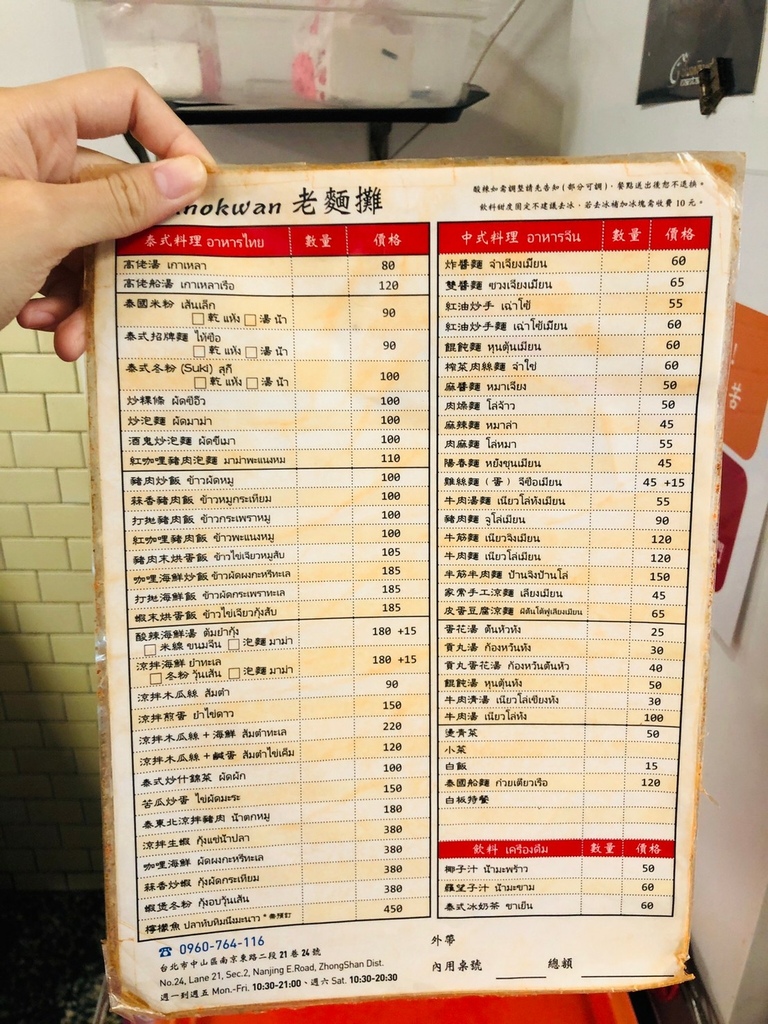 nokwan 老麵攤
酸辣如需調整請先告知(部分可調)，餐點送出後恕不退換。
飲料甜度固定不建議去冰，若去冰補加冰塊需收費 10 元。
泰式料理 อาหารไทย 數量 價格
高佬湯 เกาเหลา 80
高佬船湯 เกาเหลาเรือ 120
泰國米粉 เส้นเล็ก 90
□ 乾 แห้ง □ 湯 น้ำ
泰式招牌麵 ไห้ซือ 90
□ 乾 แห้ง □ 湯 น้ำ
泰式冬粉 (Suki) สุกี้ 100
□ 乾 แห้ง □ 湯 น้ำ
炒粿條 ผัดซีอิ๊ว 100
炒泡麵 ผัดมาม่า 100
酒鬼炒泡麵 ผัดขี้เมา 100
紅咖哩豬肉泡麵 มาม่าพะแนงหมู 110
豬肉炒飯 ข้าวผัดหมู 100
蒜香豬肉飯 ข้าวหมูกระเทียม 100
打拋豬肉飯 ข้าวกระเพราหมู 100
紅咖哩豬肉飯 ข้าวพะแนงหมู 100
豬肉末烘蛋飯 ข้าวไข่เจียวหมูสับ 105
咖哩海鮮炒飯 ข้าวผัดผงกะหรี่ทะเล 185
打拋海鮮飯 ข้าวผัดกระเพราทะเล 185
蝦末烘蛋飯 ข้าวไข่เจียวกุ้งสับ 185
酸辣海鮮湯 ต้มยำกุ้ง 180 +15
□ 米線 ขนมจีน □ 泡麵 มาม่า
涼拌海鮮 ยำทะเล 180 +15
□ 冬粉 วุ้นเส้น □ 泡麵 มาม่า
涼拌木瓜絲 ส้มตำ 90
涼拌煎蛋 ยำไข่ดาว 150
涼拌木瓜絲+海鮮 ส้มตำทะเล 220
涼拌木瓜絲+鹹蛋 ส้มตำไข่เค็ม 120
泰式炒什錦菜 ผัดผัก 100
苦瓜炒蛋 ไข่ผัดมะระ 150
泰東北涼拌豬肉 น้ำตกหมู 180
涼拌生蝦 กุ้งแช่น้ำปลา 380
咖哩海鮮 ผัดผงกะหรี่ทะเล 380
蒜香炒蝦 กุ้งผัดกระเทียม 380
蝦煲冬粉 กุ้งอบวุ้นเส้น 380
檸檬魚 ปลาทับทิมนึ่งมะนาว *需預訂 450
中式料理 อาหารจีน 數量 價格
炸醬麵 จำเจียงเมียน 60
雙醬麵 ขวงเจียงเมียน 65
紅油炒手 เฉ่าโซ้ 55
紅油炒手麵 เฉ่าโซ้เมียน 60
餛飩麵 หุนตุ้นเมียน 60
榨菜肉絲麵 จำใช่ 60
麻醬麵 หมาเจียง 50
肉燥麵 โล่จ้าว 50
麻辣麵 หมาล่า 45
肉麻麵 โล่หมา 55
陽春麵 หยังขุนเมียน 45
雞絲麵(蛋) จีซือเมียน 45 +15
牛肉湯麵 เนียวโล่ทังเมียน 55
豬肉麵 จูโล่เมียน 90
牛筋麵 เนียวจิงเมียน 120
牛肉麵 เนียวโล่เมียน 120
半筋半肉麵 ป้านจิงป้านโล่ 150
家常手工涼麵 เลียงเมียน 45
皮蛋豆腐涼麵 ผีตันโต้ฟูเลียงเมียน 65
蛋花湯 ตันหัวทัง 25
貢丸湯 ก้องหวันทัง 30
貢丸蛋花湯 ก้องหวันตันหัว 40
餛飩湯 หุนตุ้นทัง 50
牛肉清湯 เนียวโล่เชียงทัง 30
牛肉湯 เนียวโล่ทัง 100
燙青菜 50
小菜
白飯 15
泰國船麵 ก๋วยเตี๋ยวเรือ 120
白板特餐
飲料 เครื่องดื่ม 數量 價格
椰子汁 น้ำมะพร้าว 50
羅望子汁 น้ำมะขาม 60
泰式冰奶茶 ชาเย็น 60
☎ 0960-764-116
台北市中山區南京東路二段 21 巷 24 號
No.24, Lane 21, Sec.2, Nanjing E.Road, ZhongShan Dist.
週一到週五 Mon.-Fri. 10:30-21:00、週六 Sat. 10:30-20:30
外帶
內用桌號 總額